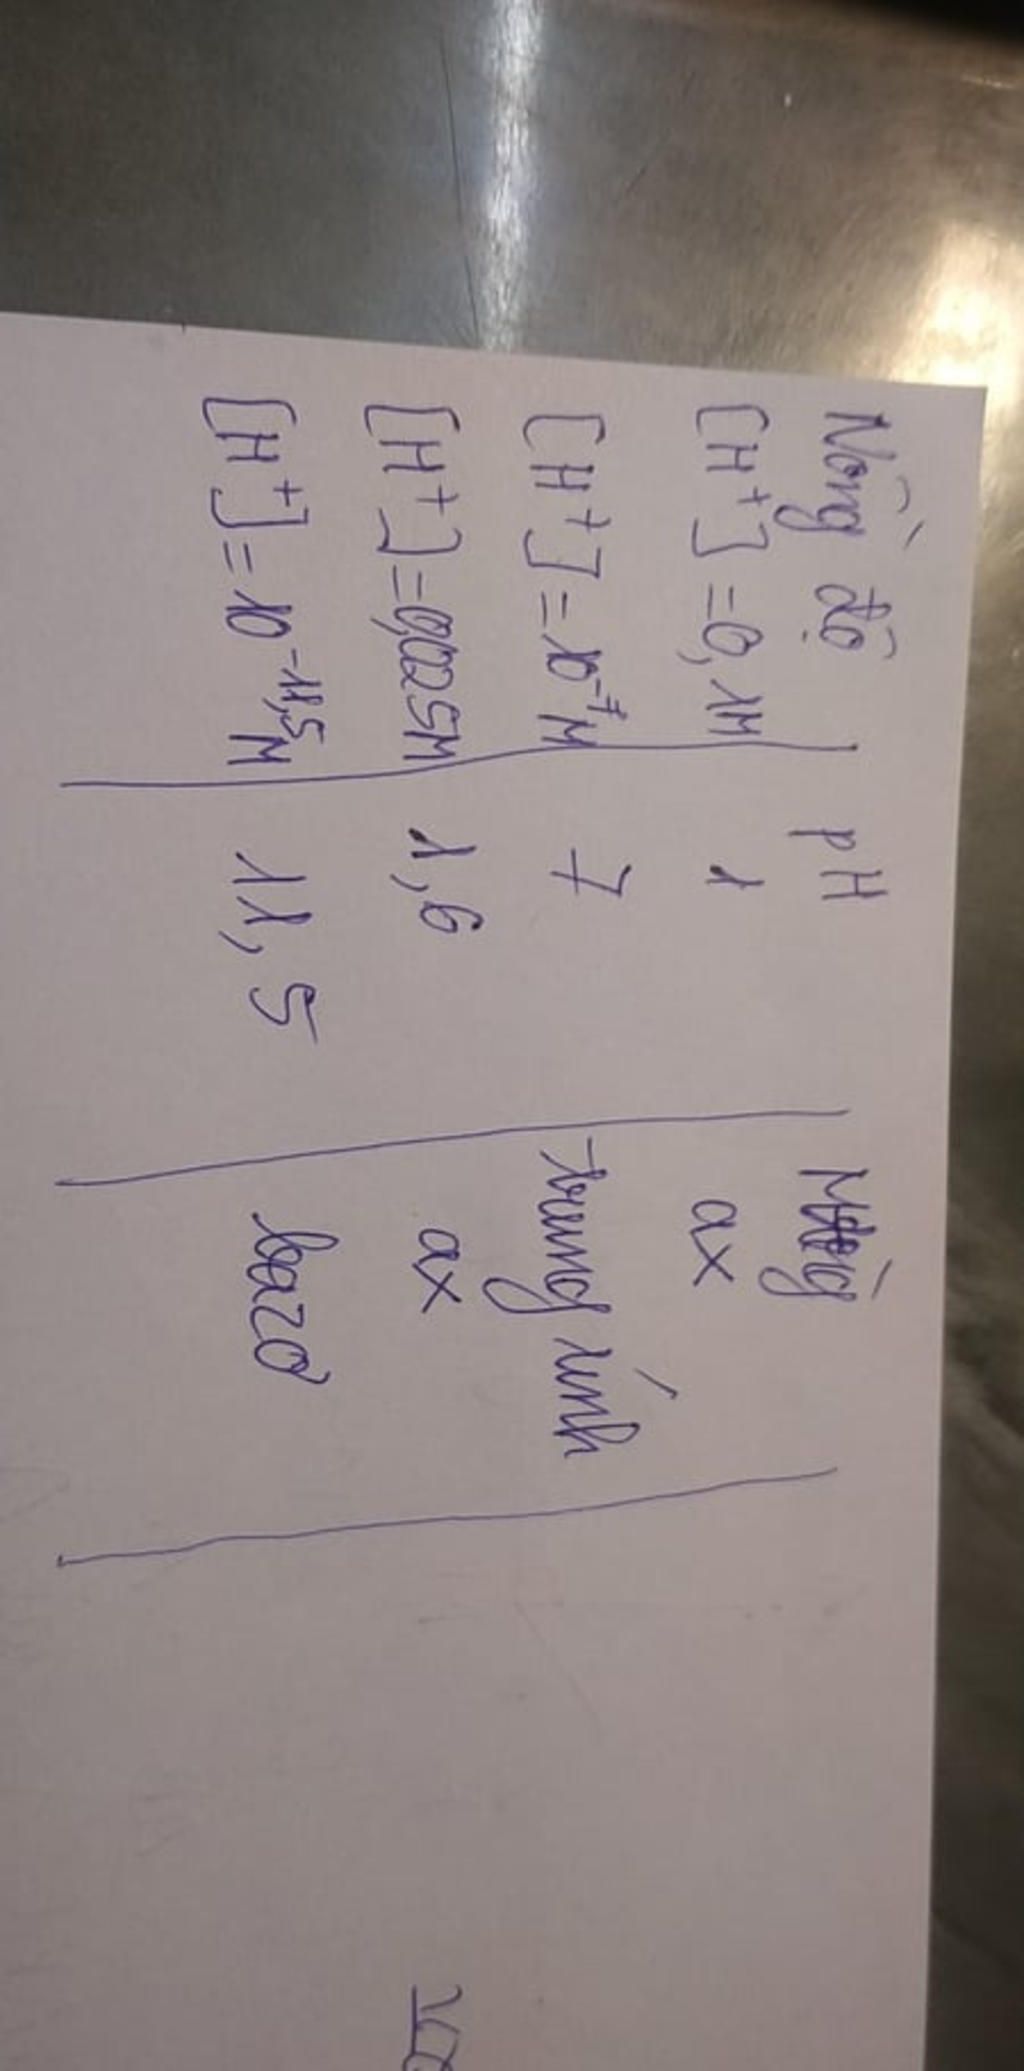 Nồng độ pH Mtrường
[H+] = 0,1M 1 ax
[H+] = 10-7M 7 trung tính
[H+] = 0,025M 1,6 ax
[H+] = 10-11,5M 11,5 bazơ